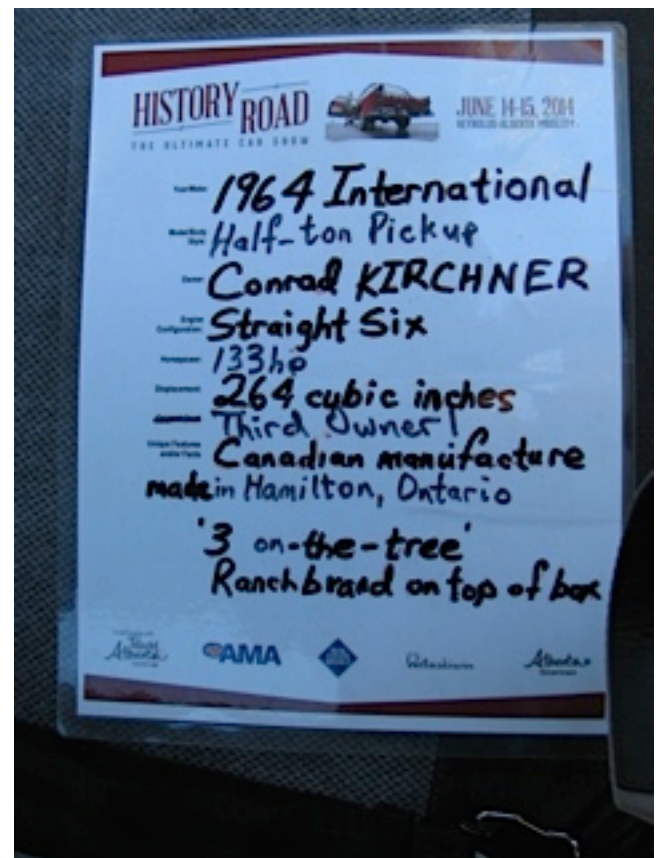 HISTORY ROAD
THE ULTIMATE CAR SHOW
JUNE 14-15, 2014
REYNOLDS-ALBERTA MUSEUM
1964 International
Model/Body Style: Half-ton Pickup
Owner: Conrad KIRCHNER
Engine Configuration: Straight Six
Horsepower: 133hp
Displacement: 264 cubic inches
Third Owner!
Unique Features and/or Facts: Canadian manufacture
made in Hamilton, Ontario
'3 on-the-tree'
Ranch brand on top of box
Alberta
AMA
Alberta